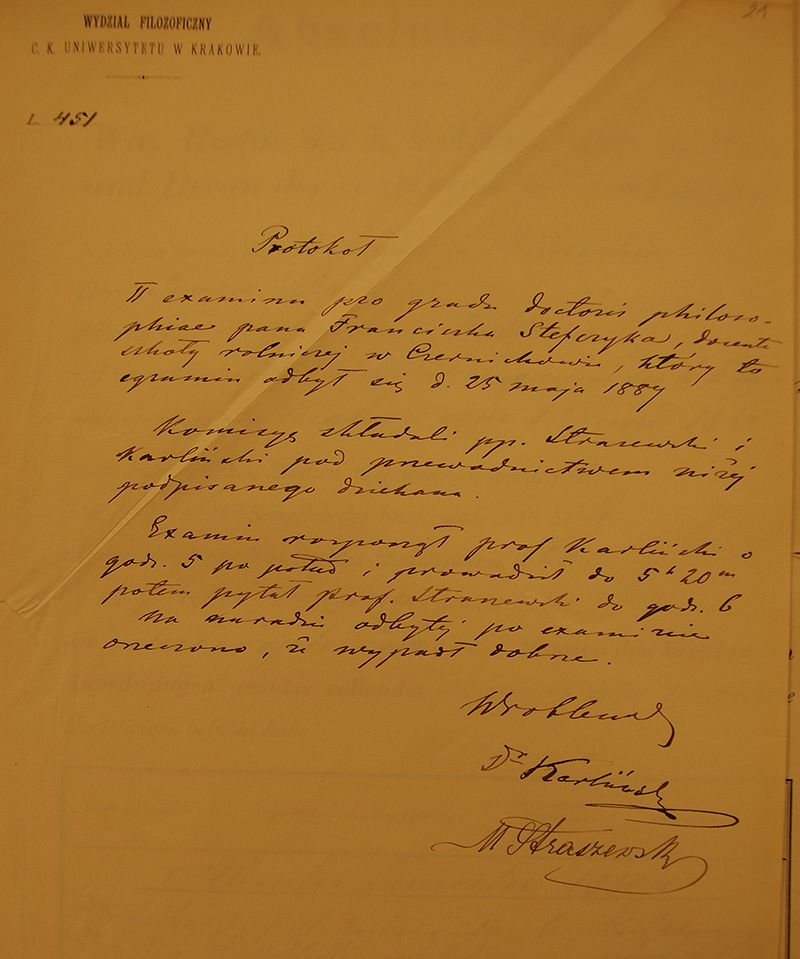 21
WYDZIAŁ FILOZOFICZNY
C. K. UNIWERSYTETU W KRAKOWIE.
L. 451
Protokoł
II examinu pro gradu doctoris philoso-
phiae pana Franciszka Stefczyka, docenta
szkoły rolniczej w Czernichowie, który to
egzamin odbył się d. 25 maja 1889
Komisyę składali pp. Straszewski i
Karliński pod przewodnictwem niżej
podpisanego dziekana.
Examin rozpoczął prof Karliński o
godz. 5 po połud i prowadził do 5h 20m
potem pytał prof. Straszewski do godz. 6
Na naradzie odbytej po examinie
orzeczono, że wypadł dobrze.
Dr Karliński
M Straszewski